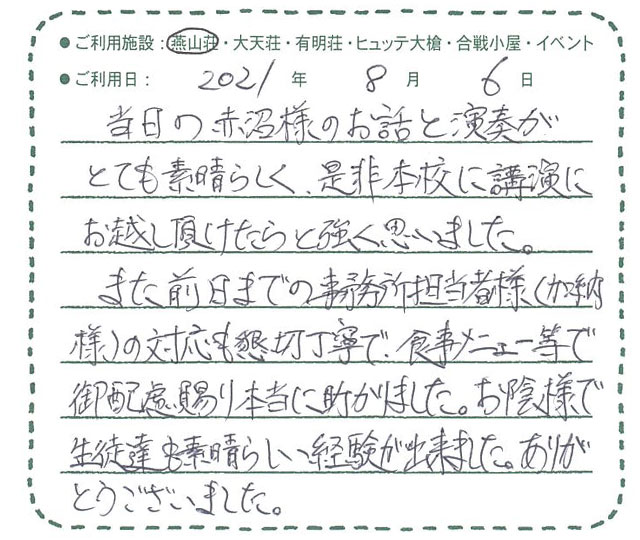 ● ご利用施設：燕山荘・大天荘・有明荘・ヒュッテ大槍・合戦小屋・イベント
● ご利用日： 2021 年 8 月 6 日
当日の赤沼様のお話と演奏が
とても素晴らしく、是非本校に講演に
お越し頂けたらと強く思いました。
また前日までの事務所担当者様（加納
様）の対応も懇切丁寧で、食事メニュー等で
御配慮賜り本当に助かりました。お陰様で
生徒達も素晴らしい経験が出来ました。ありが
とうございました。